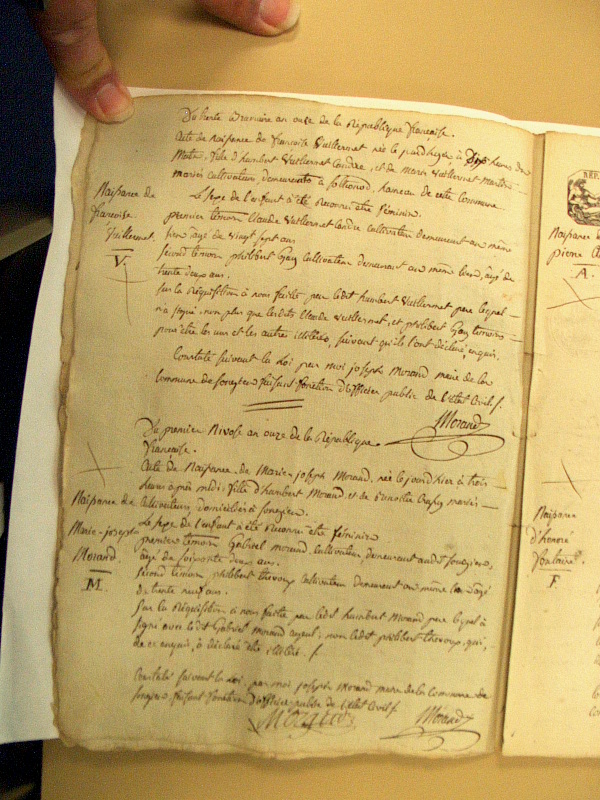 Du trente Brumaire an onze de la République française.
Acte de Naissance de françoise Vuillermet née le jourd'hyer à Dix heures du
Matin, fille d'humbert Vuillermet Candre, et de Marie Vuillermet
mariés cultivateurs demeurants à hameau de cette Commune
Le sexe de l'enfant a été Reconnu être féminin.
premier témoin Claude Vuillermet Candre cultivateur demeurant au même
lieu âgé de vingt sept ans
second témoin philibert Gay Cultivateur demeurant au même lieu, âgé de
trente deux ans.
sur la Réquisition à nous faite par ledit humbert Vuillermet pere lequel
n'a signé, non plus que lesdits Claude Vuillermet, et philibert Gay témoins
pour être les uns et les autres illitérés, suivant qu'ils l'ont déclaré, enquis.
Constaté suivant la Loi par moi joseph Morand maire de la
Commune de faisant fonction d'officier public de l'état Civil
Morand
Naissance de
françoise
Vuillermet.
V.
Du premier Nivose an onze de la République
française.
Acte de Naissance de Marie-joseph Morand, née le jourd'hier à trois
heures après midi, fille d'humbert Morand et de mariés
Cultivateurs, domiciliés à
Le sexe de l'enfant a été Reconnu être féminin
premier témoin Gabriel Morand, cultivateur, demeurant audit
âgé de soixante deux ans.
second témoin, philibert cultivateur demeurant au même lieu âgé
de trente neuf ans.
Sur la Réquisition à nous faite par ledit humbert Morand pere lequel a
signé avec ledit Gabriel Morand ayeul; non ledit philibert qui,
de ce enquis, à déclaré être illitéré.
Constaté suivant la Loi, par moi joseph Morand maire de la Commune de
faisant fonction d'officier public de l'état Civil
Morand
Morand
Naissance de
Marie-joseph
Morand.
M.
REP
Naissance d
pierre
A.
Naissance
d'honoré
fontaine
F.